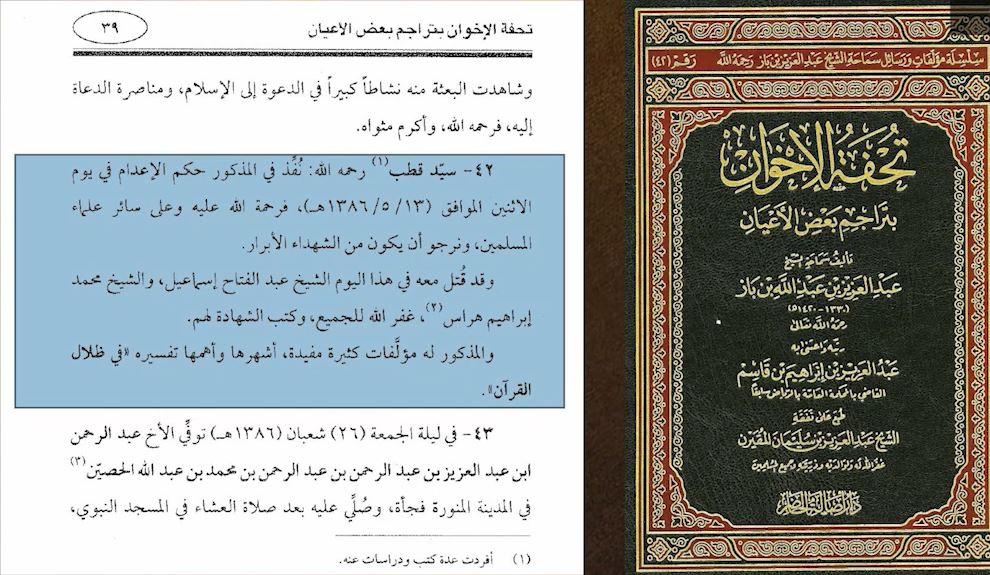 تحفة الإخوان بتراجم بعض الأعيان
٣٩
وشاهدت البعثة منه نشاطاً كبيراً في الدعوة إلى الإسلام، ومناصرة الدعاة
إليه، فرحمه الله، وأكرم مثواه.
٤٢- سيّد قطب(١) رحمه الله: نُفِّذ في المذكور حكم الإعدام في يوم
الاثنين الموافق (١٣/ ٥/ ١٣٨٦هـ)، فرحمة الله عليه وعلى سائر علماء
المسلمين، ونرجو أن يكون من الشهداء الأبرار.
وقد قُتل معه في هذا اليوم الشيخ عبد الفتاح إسماعيل، والشيخ محمد
إبراهيم هراس(٢)، غفر الله للجميع، وكتب الشهادة لهم.
والمذكور له مؤلَّفات كثيرة مفيدة، أشهرها وأهمها تفسيره «في ظلال
القرآن».
٤٣- في ليلة الجمعة (٢٦) شعبان (١٣٨٦هـ) توفِّي الأخ عبد الرحمن
ابن عبد العزيز بن عبد الرحمن بن عبد الرحمن بن محمد بن عبد الله الحصيّن(٣)
في المدينة المنورة فجأة، وصُلِّي عليه بعد صلاة العشاء في المسجد النبوي،
(١) أفردت عدة كتب ودراسات عنه.
سلسلة مؤلفات ورسائل سماحة الشيخ عبد العزيز بن باز رحمه الله رقم (٤٢)
تحفة الإخوان
بتراجم بعض الأعيان
تأليف سماحة الشيخ
عبد العزيز بن عبد الله بن باز
(١٣٣٠-١٤٢٠هـ)
رحمه الله تعالى
رتبه واعتنى به
عبد العزيز بن إبراهيم بن قاسم
القاضي بالمحكمة العامة بالرياض سابقاً
طبع على نفقة
الشيخ عبد العزيز بن سليمان المقيرن
غفر الله له ولوالديه وذريته وجميع المسلمين
دار أصالة الحاضر